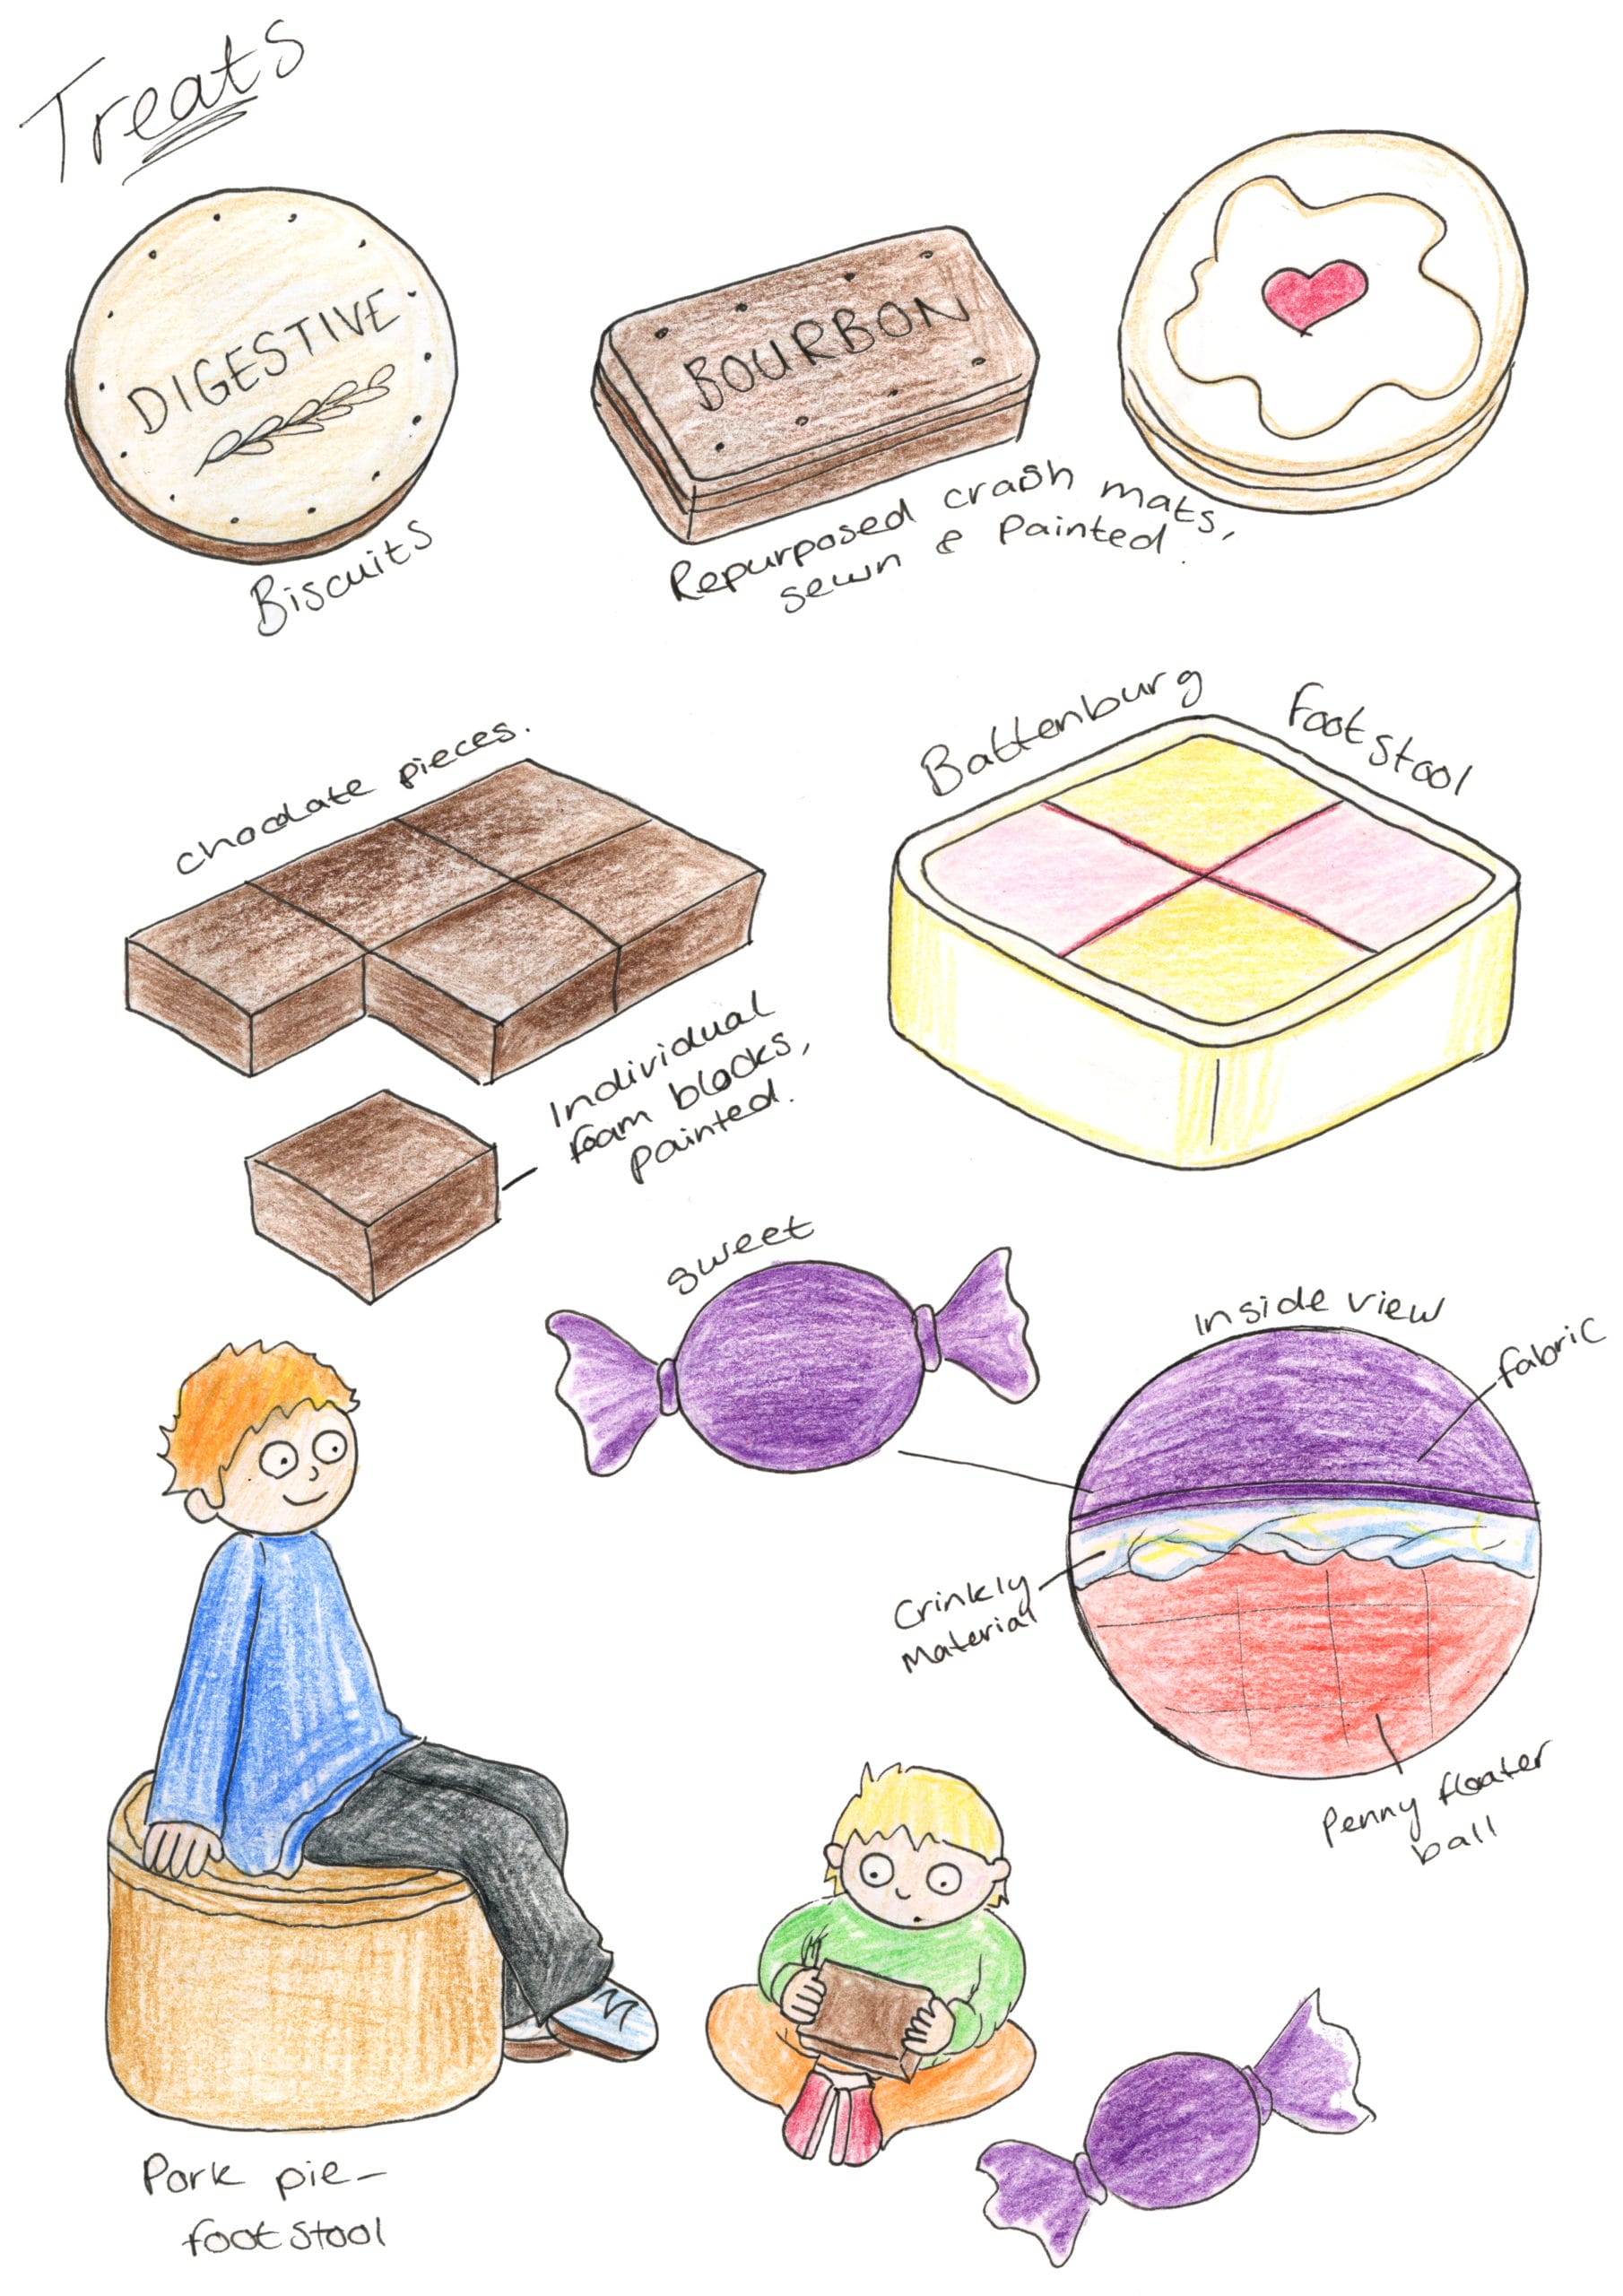 Treats
DIGESTIVE
BOURBON
Biscuits
Repurposed crash mats,
sewn & painted.
chocolate pieces.
Battenburg Footstool
Individual
foam blocks,
painted.
sweet
Inside view
fabric
Crinkly
Material
Penny floater
ball
Pork pie-
footstool